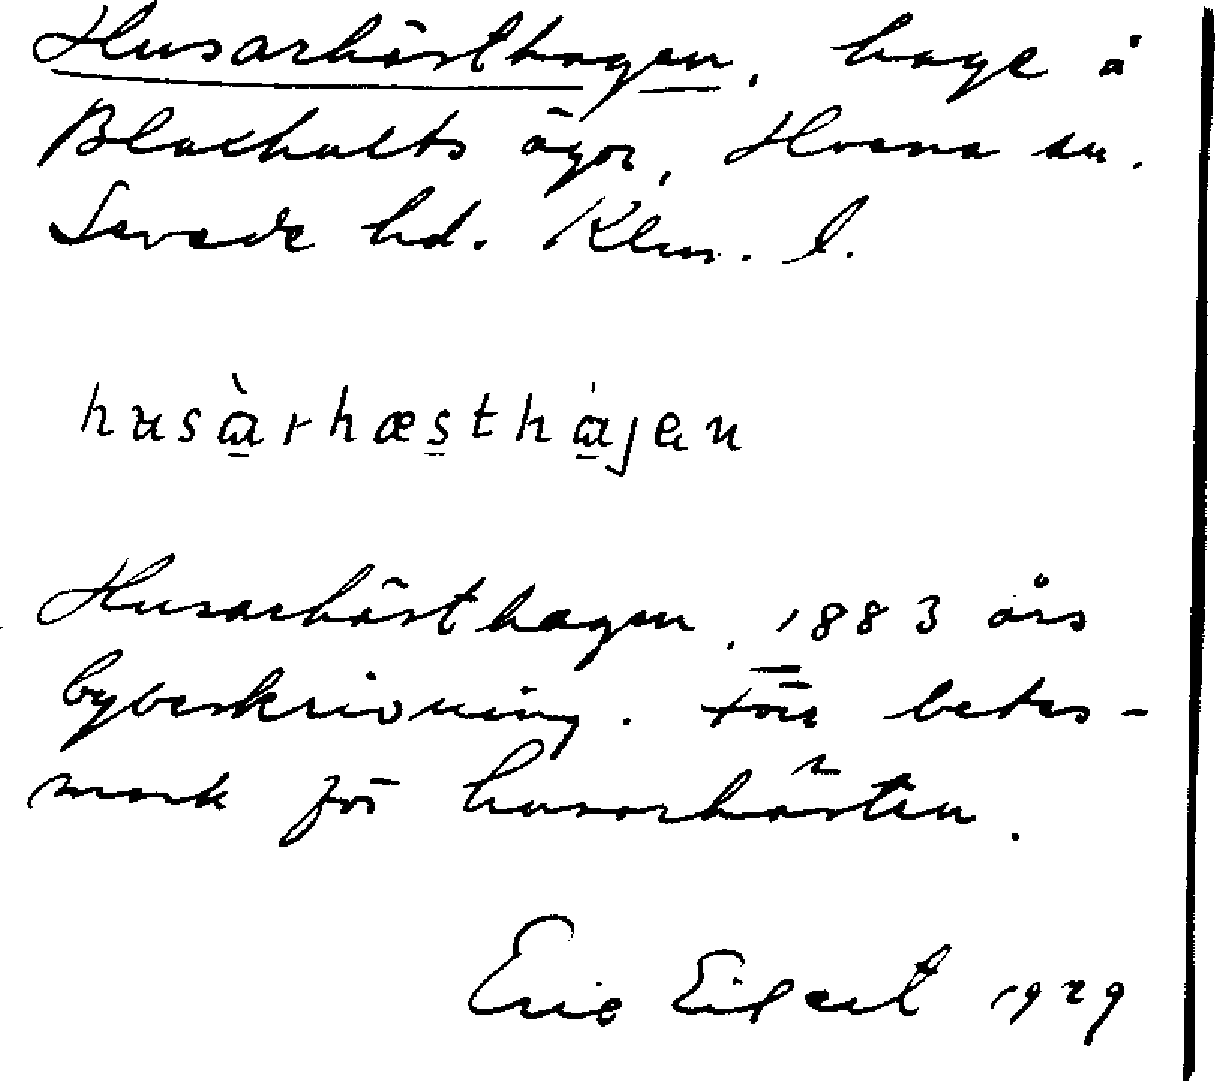 Husarhästhagen, hage å
Blaxhults ägor, Hvena sn.
Sevede hd. Klm. l.
husàrhæsthájen
Husarhästhagen, 1883 års
bybeskrivning. Förr betes-
mark för husarhästen.
Eric Eilert 1929